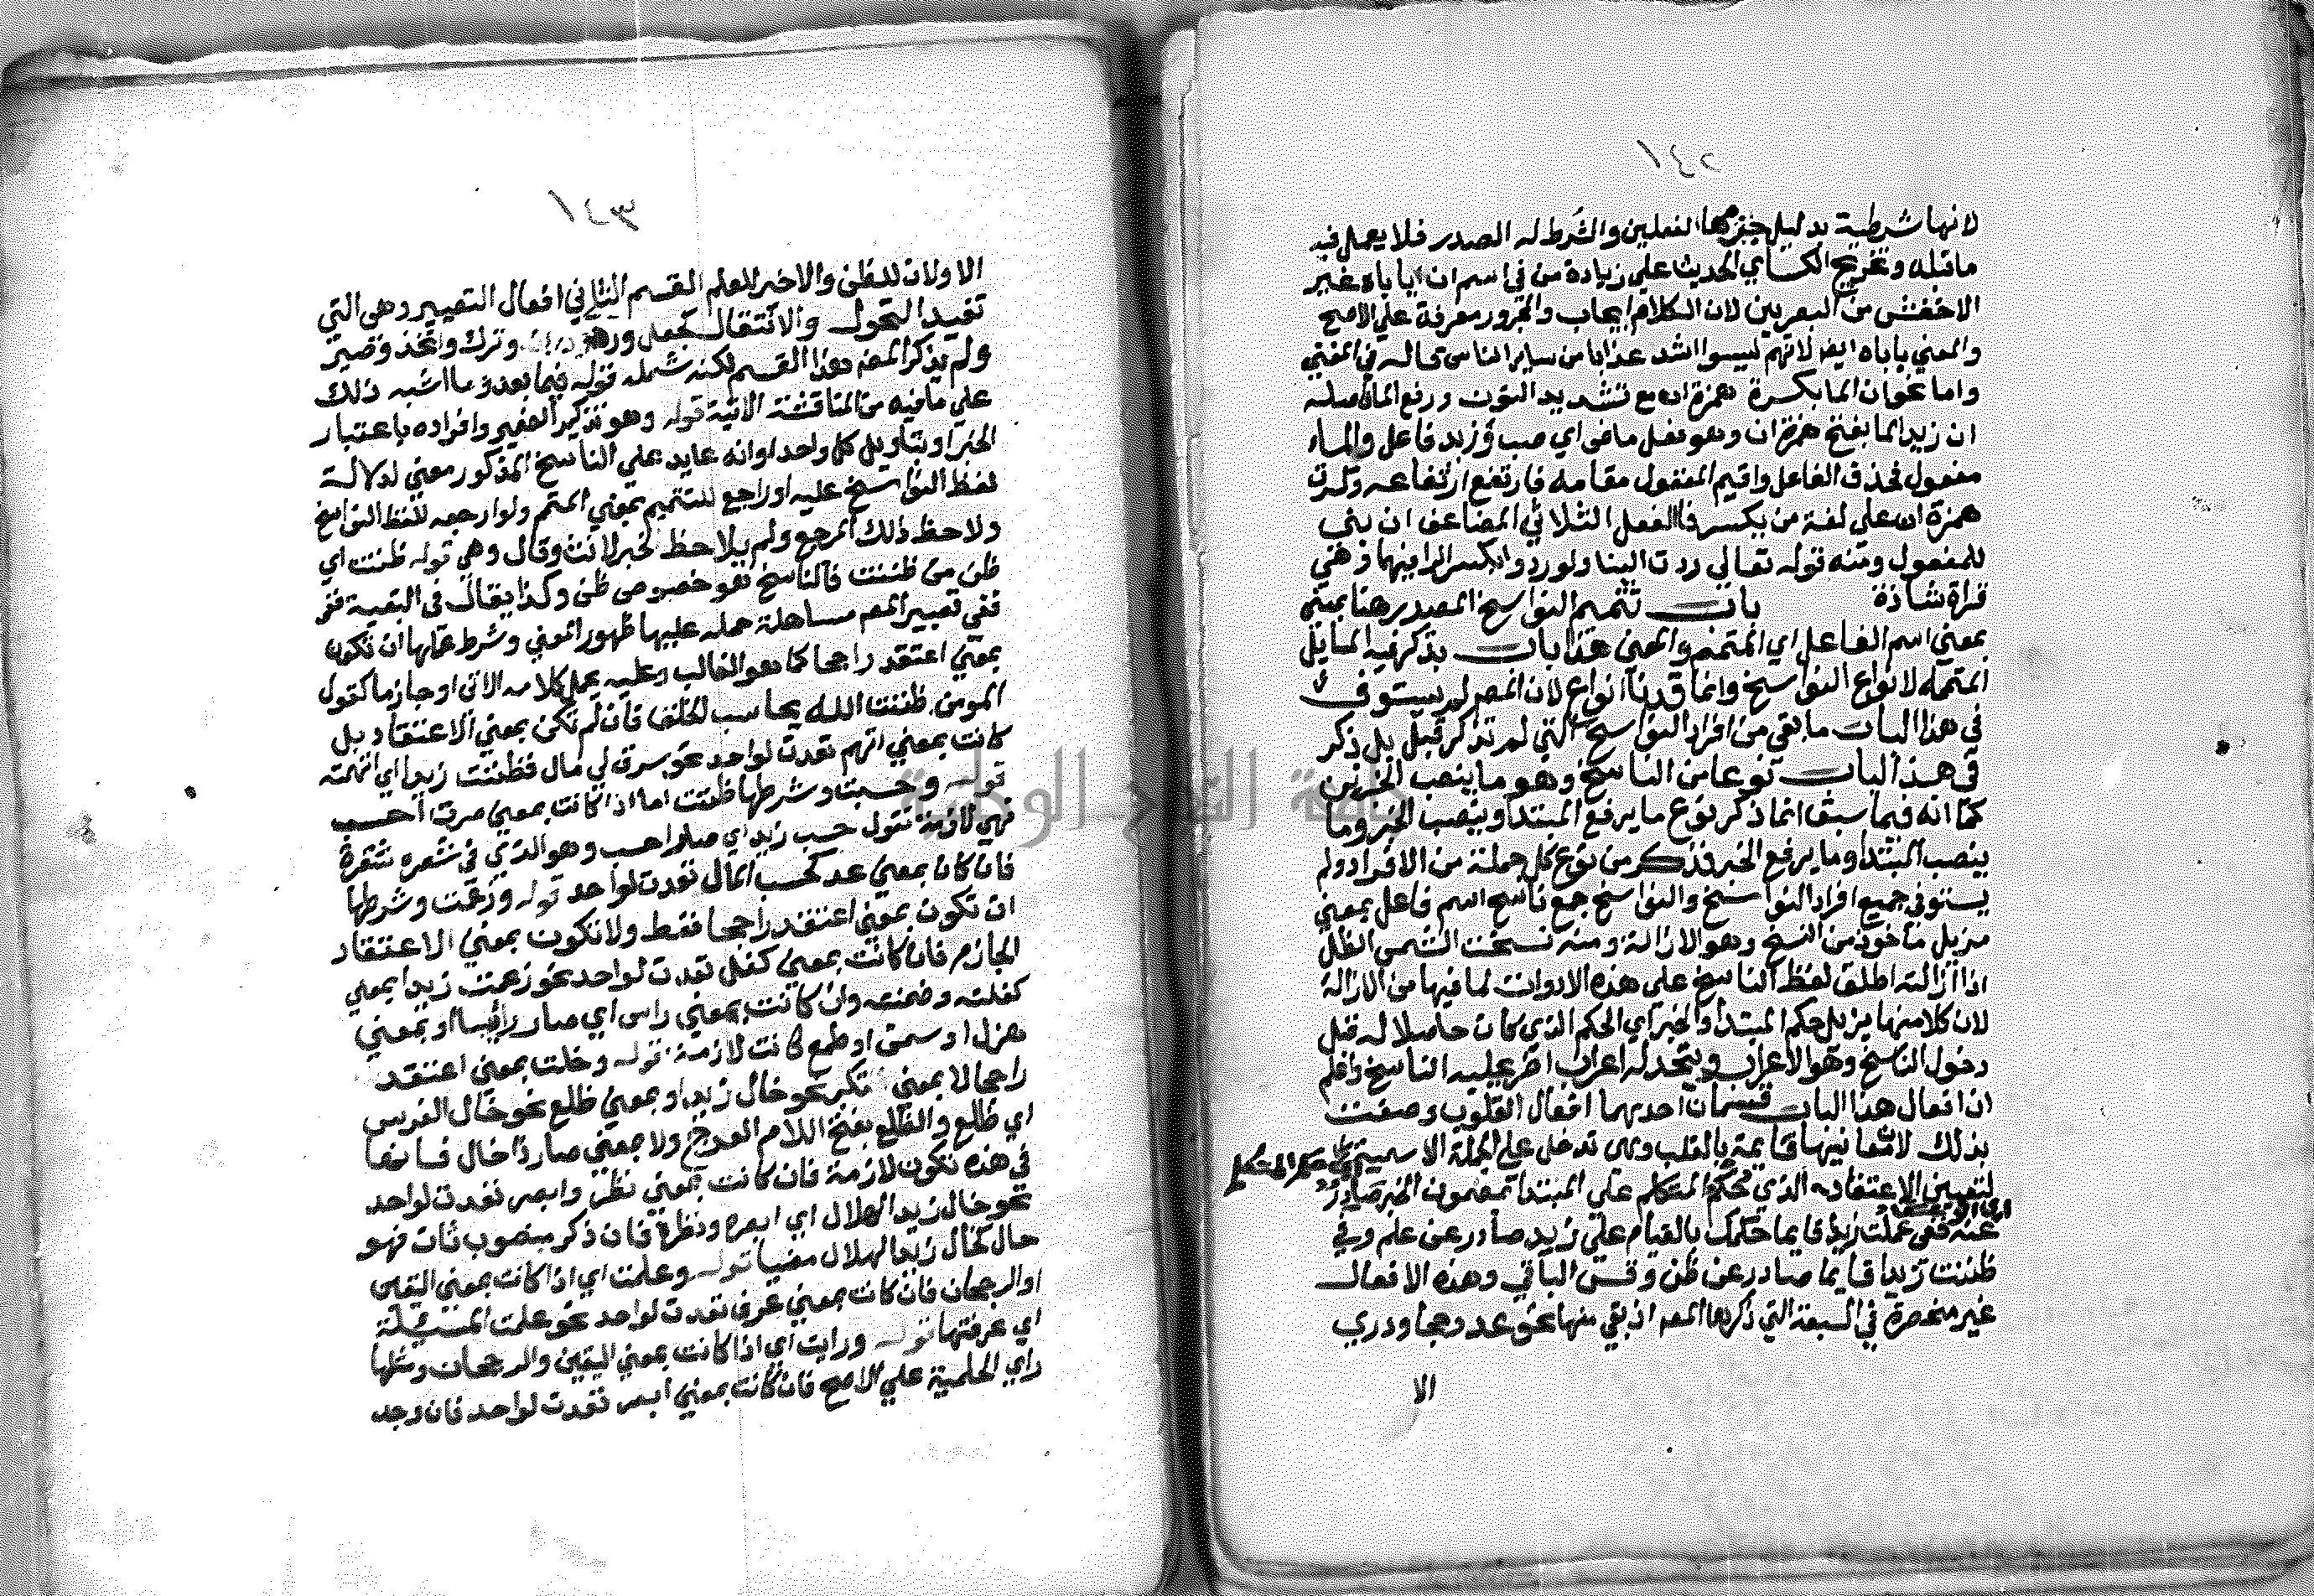 ١٤٢
لانها شرطية بدليل جزمها الفعلين والشرط له الصدر فلا يعمل فيه
ما قبله وتخريج الكساي الحديث علي زيادة من في اسم ان اباه غير
الاخفش من البصريين لان الكلام ايجاب والمجرور معرفة علي الاصح
والمعني ياباه ايضا لانهم ليسوا اشد عذابا من ساير الناس قاله في المغني
واما نحو ان الما بكسرة همزة ان مع تشديد النون ورفع الما فاصله
ان زيد الما بفتح همزة ان وهو فعل ماضي اي صب وزيد فاعل والماء
مفعول فحذف الفاعل واقيم المفعول مقامه فارتفع ارتفاعه وكسرت
همزة ان علي لغة من يكسر فا الفعل الثلاثي المضاعف ان بني
للمفعول ومنه قوله تعالي ردت الينا ولو ردوا بكسر الرا فيهما وهي
قراة شاذة باب تتميم النواسخ المصدر هنا بمعني
بمعني اسم الفاعل اي المتمم والمعني هذا باب يذكر فيه المسايل
المتممة لانواع النواسخ وانما قدرنا انواع لان المص لم يستوف
في هذا الباب ما بقي من افراد النواسخ التي لم تذكر قبل بل ذكر
في هذا الباب نوعا من الناسخ وهو ما ينصب الجزئين
كما انه فيما سبق انما ذكر نوع ما يرفع المبتدا وينصب الخبر وما
ينصب المبتدا وما يرفع الخبر فذكر من نوع كل جملة من الافراد ولم
يستوفي جميع افراد النواسخ والنواسخ جمع ناسخ اسم فاعل بمعني
مزيل ماخوذ من النسخ وهو الازالة ومنه نسخت الشمس الظل
اذا ازالته اطلق لفظ الناسخ علي هذه الادوات لما فيها من الازالة
لان كلا منها يزيل حكم المبتدا والخبر اي الحكم الذي كان حاصلا له قبل
دخول الناسخ وهو الاعراب ويتجدد له اعراب اخر عليه الناسخ واعلم
ان افعال هذا الباب قسمان احديهما افعال القلوب وصفت
بذلك لان معانيها قايمة بالقلب وهي تدخل علي الجملة الاسمية
لتعيين الاعتقاد الذي حكم المتكلم علي المبتدا بمضمون الخبر صادر
عنه ففي علمت زيدا قايما حكمك بالقيام علي زيد صادر عن علم وفي
ظننت زيدا قايما صادر عن ظن وقس الباقي وهذه الافعال
غير منحصرة في السبعة التي ذكرها المص اذ بقي منها نحو عد وحجا ودري
الا
١٤٣
الاولان للظن والاخير للعلم القسم الثاني افعال التصيير وهي التي
تفيد التحول والانتقال كجعل ورد وترك واتخذ وصير
ولم يذكر المص هذا القسم لكنه شمله قوله فيما بعد وما اشبه ذلك
علي ما فيه من المناقشة الاتية قوله وهو تذكير الضمير وافراده باعتبار
الخبر او بتاويل كل واحد او انه عايد علي الناسخ المذكور معني لدلالة
لفظ النواسخ عليه او راجع للتتميم بمعني المتمم ولو ارجعه للفظ النواسخ
ولاحظ ذلك المرجع ولم يلاحظ الخبر لانث وقال وهي قوله ظننت اي
ظن من ظننت فالناسخ هو خصوص ظن وكذا يقال في البقية
ففي تعبير المص مساهلة حمله عليها ظهور المعني وشرط عملها ان تكون
بمعني اعتقد راجحا كما هو الغالب وعليه يحمل كلامه الاتي او جازما كقول
المومن ظننت الله يحاسب الخلق فان لم تكن بمعني الاعتقاد بل
كانت بمعني اتهم تعدت لواحد نحو سرق لي مال فظننت زيدا اي اتهمته
قوله وحسبت وشرطها ظننت اما اذا كانت بمعني صرت احسب
فهي لازمة تقول حسب زيد اي صار احسب وهو الذي في شعره شقرة
فان كان بمعني عد كحسب المال تعدت لواحد قوله وزعمت وشرطها
ان تكون بمعني اعتقد راجحا فقط ولا تكون بمعني الاعتقاد
الجازم فان كانت بمعني كفل تعدت لواحد نحو زعمت زيدا بمعني
كفلته وضمنته وان كانت بمعني راس اي صار رايسا او بمعني
هزل او سمن او طمع كانت لازمة قوله وخلت بمعني اعتقد
راجحا لا بمعني تكبر نحو خال زيد او بمعني ظلع نحو خال الفرس
اي ظلع والظلع بفتح اللام العرج ولا بمعني صار ذا خال فانها
في هذه تكون لازمة فان كانت بمعني نظر وابصر تعدت لواحد
نحو خال زيد الهلال اي ابصره ونظره فان ذكر منصوب ثان فهو
حال كخال زيد الهلال مضيا قوله وعلمت اي اذا كانت بمعني اليقين
او الرجحان فان كانت بمعني عرف تعدت لواحد نحو علمت المسئلة
اي عرفتها قوله ورايت اي اذا كانت بمعني اليقين والرجحان ومثلها
راي الحلمية علي الاصح فان كانت بمعني ابصر تعدت لواحد فان وجد